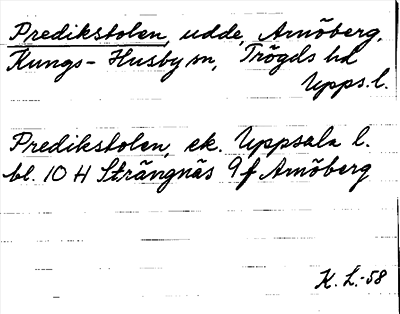 Predikstolen, udde, Arnöberg,
Kungs-Husby sn, Trögds hd
Upps. l.
Predikstolen, ek. Uppsala l.
bl. 10 H Strängnäs 9 f Arnöberg
K. L.-58